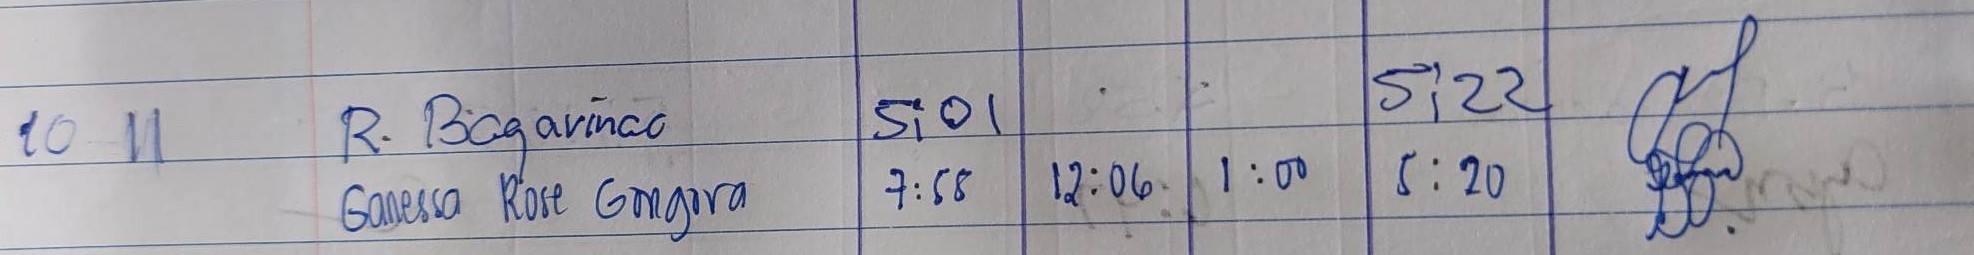 10 11 R. Bagariñao 5:01 5:22
Ganessa Rose Gongora 7:58 12:06 1:00 5:20